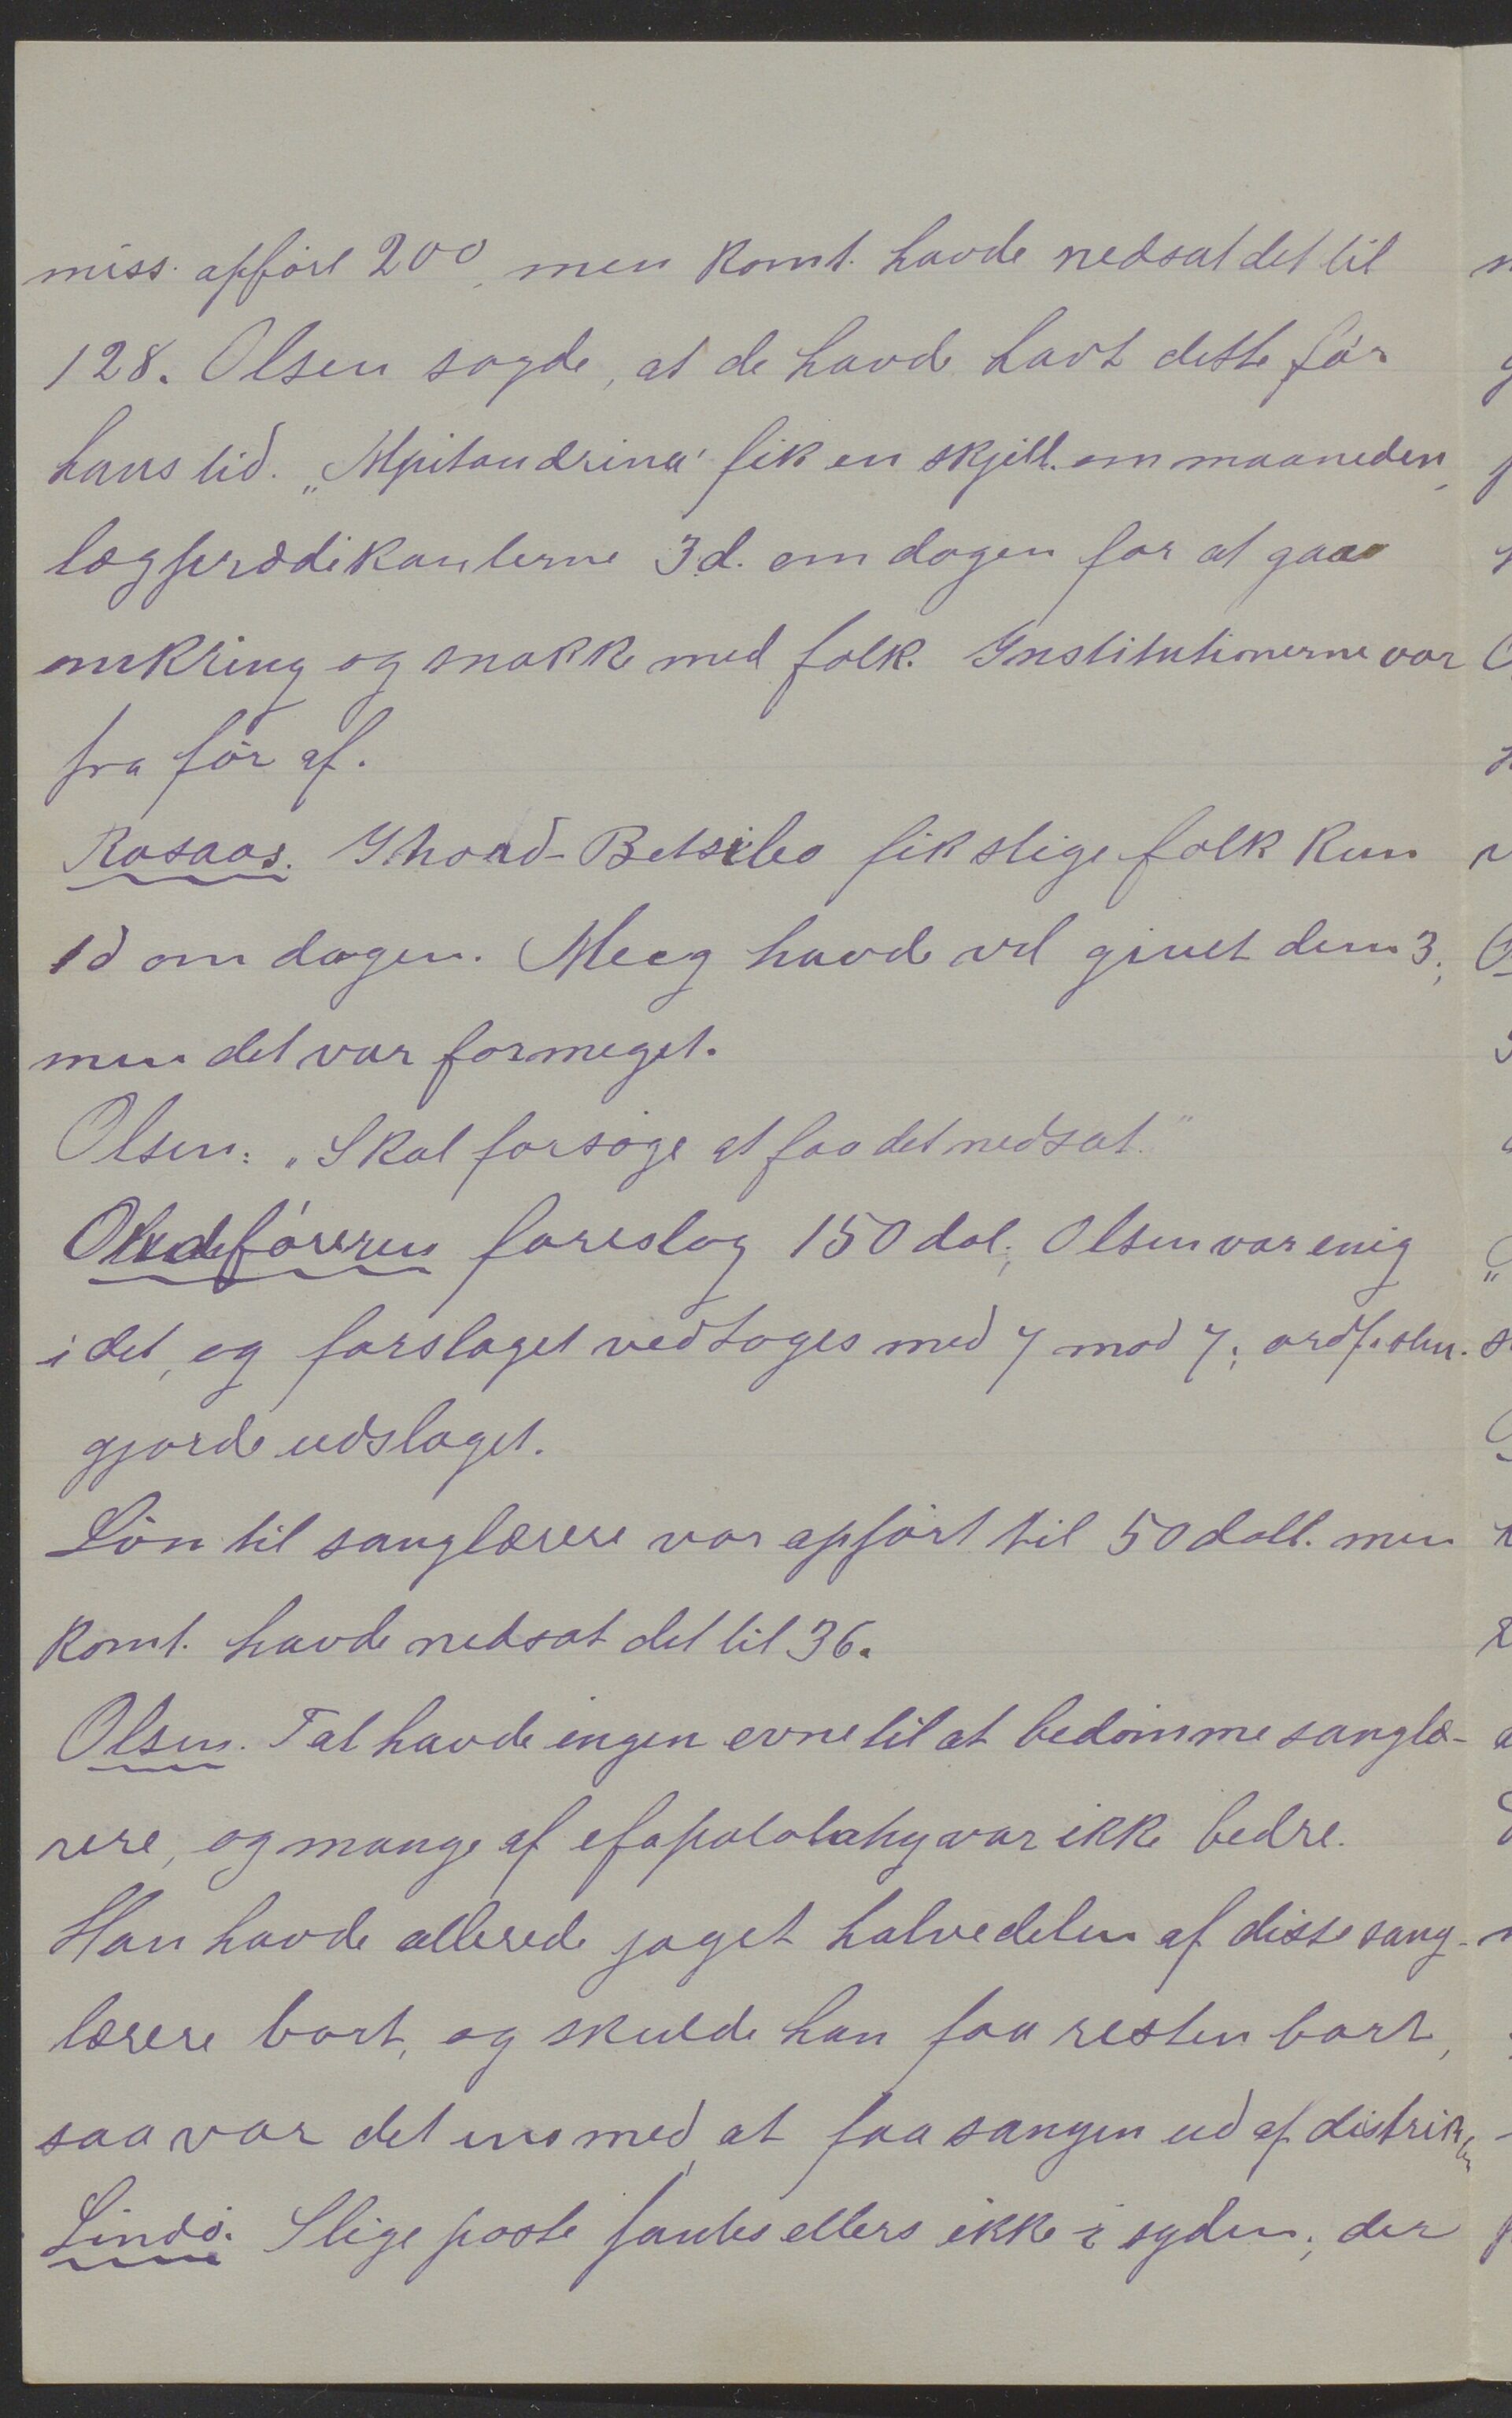 miss. opført 200, men komt. havde nedsat det til
128. Olsen sagde, at de havde havt dette før
hans tid. „Mpitandrina" fik en skjill. om maaneden,
lægprædikanterne 3 d. om dagen for at gaa
omkring og snakke med folk. Institutionerne var
fra før af.
Rosaas. I nord-Betsileo fik slige folk kun
1 d om dagen. Meeg havde vel givet dem 3;
men det var formeget.
Olsen: „Skal forsøge at faa det nedsat."
Ordføreren foreslog 150 dol.; Olsen var enig
i det, og forslaget vedtoges med 7 mod 7; ordf. stm.
gjorde udslaget.
Løn til sanglærere var opført til 50 doll. men
komt. havde nedsat det til 36.
Olsen. Tal havde ingen evne til at bedømme sanglæ-
rere, og mange af efapatolahy var ikke bedre.
Han havde allerede jaget halvedelen af disse sang-
lærere bort, og skulde han faa resten bort,
saa var det ens med at faa sangen ud af distrikter
Lindø. Slige poste fantes ellers ikke i syden; der